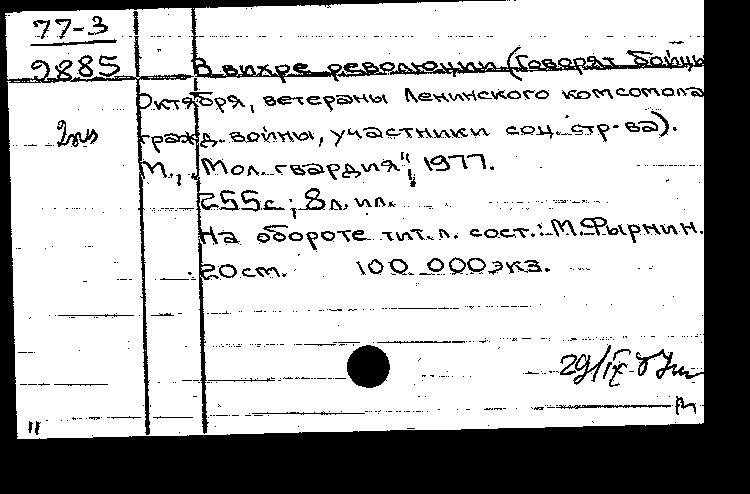 77-3
9885
В вихре революции. (Говорят бойцы
Октября, ветераны Ленинского комсомола
гражд. войны, участники соц. стр-ва).
М., "Мол. гвардия", 1977.
255с.; 8л. ил.
На обороте тит. л. сост.: М. Фырнин.
20см. 100 000экз.
29/IX